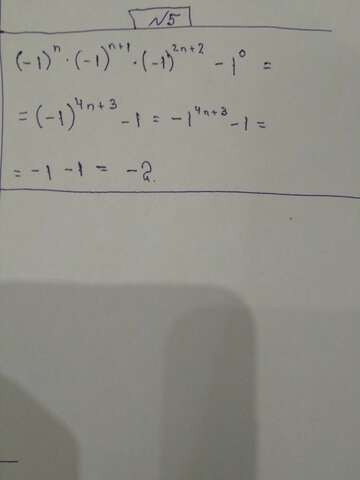 №5
(-1)ⁿ · (-1)ⁿ⁺¹ · (-1)²ⁿ⁺² - 1⁰ =
= (-1)⁴ⁿ⁺³ - 1 = -1⁴ⁿ⁺³ - 1 =
= -1 - 1 = -2.